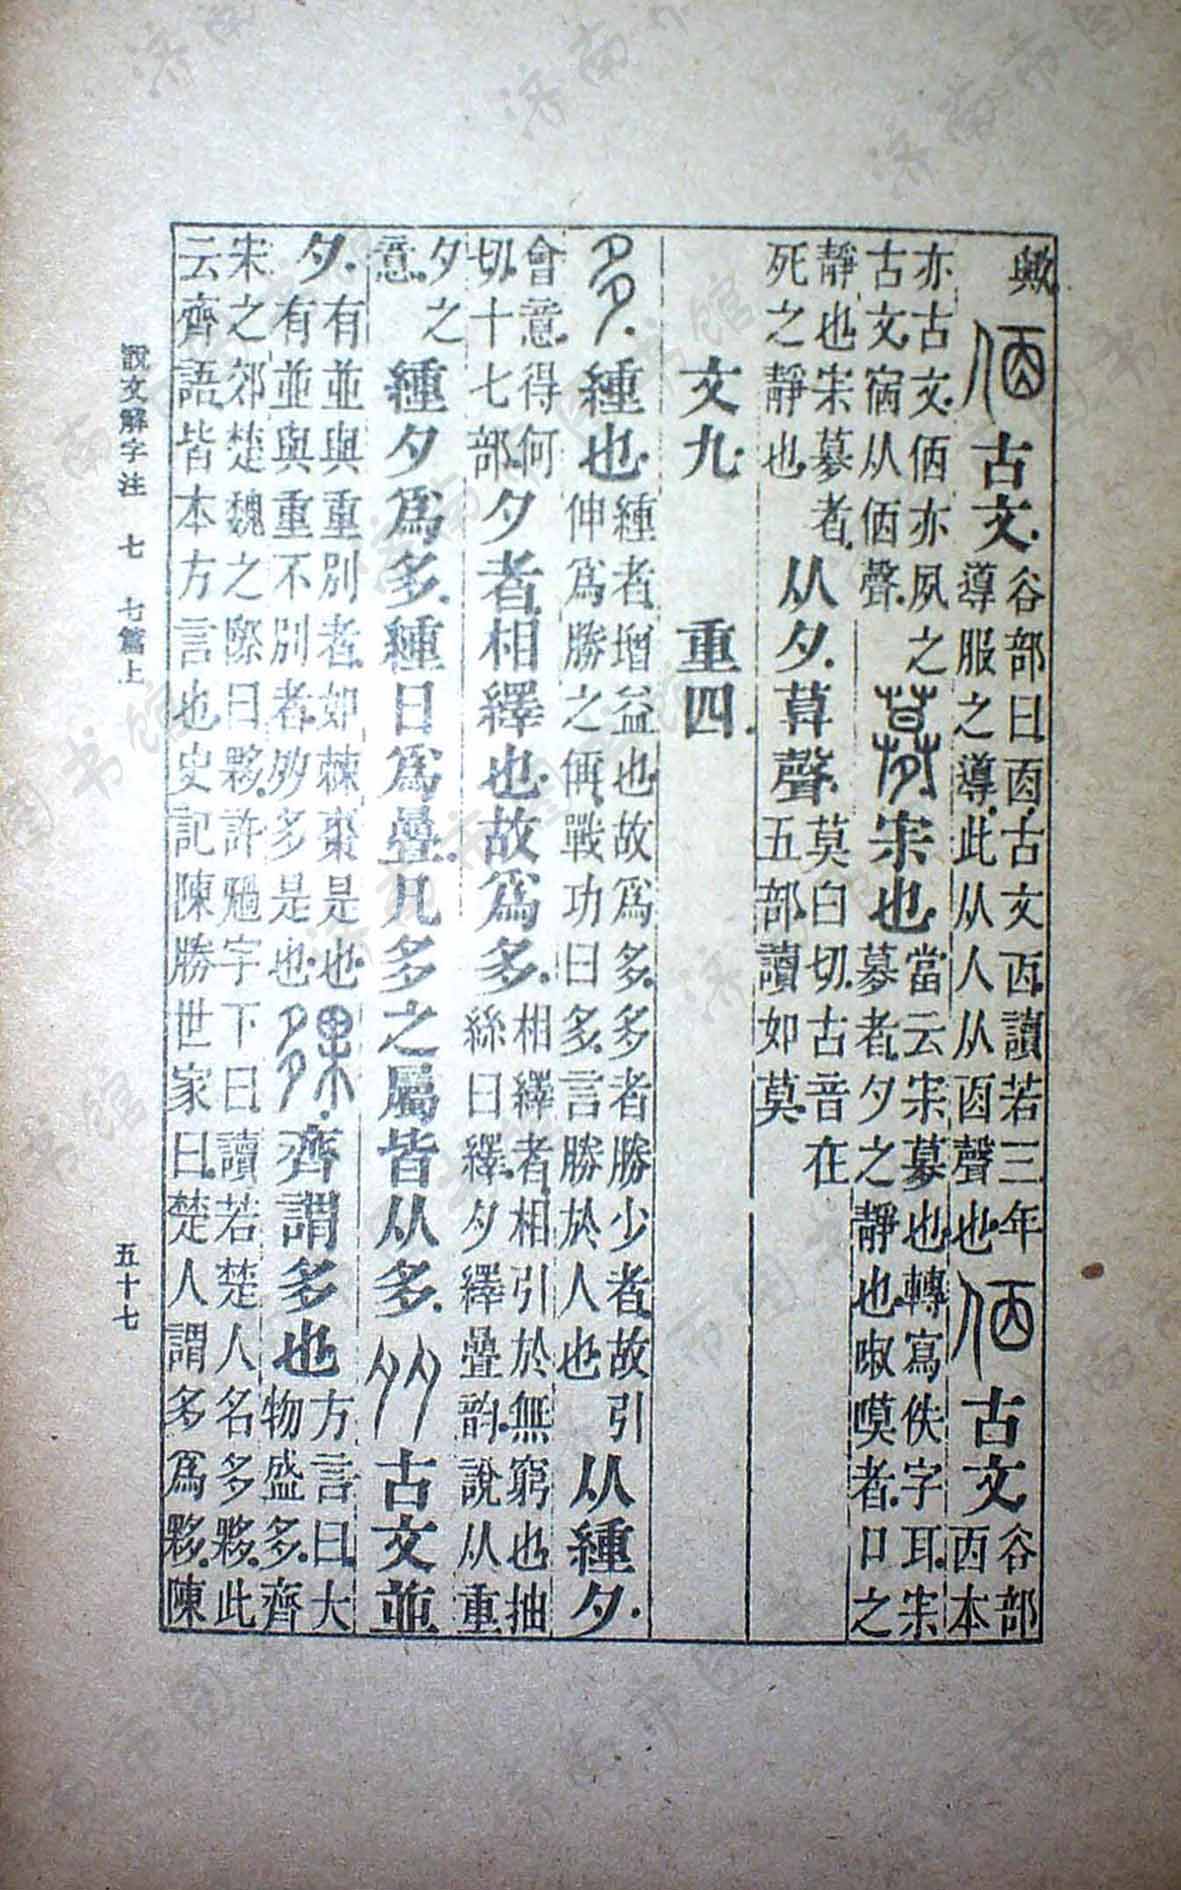 歟 古文 谷部曰㐁古文㐁讀若三年導服之導此从人从㐁聲也 古文 谷部㐁本
亦古文㐁亦夙之古文宿从㐁聲 宋也 當云宋募也轉寫佚字耳宋募者夕之靜也啾嗼者口之
靜也宋募者死之靜也 从夕莫聲 莫白切古音在五部讀如莫
文九 重四
多 緟也 緟者增益也故爲多多者勝少者故引伸爲勝之偁戰功曰多言勝於人也 从緟夕
會意得何切十七部 夕者相繹也故爲多 相繹者相引於無窮也抽絲曰繹夕繹疊韵說从重
夕之意 緟夕爲多緟日爲疊凡多之屬皆从多 古文並
夕 有並與重別者如棘棗是也有並與重不別者多是也 夥 齊謂多也 方言曰大物盛多齊
宋之郊楚魏之際曰夥許字下曰讀若楚人名多夥此云齊語皆本方言也史記陳勝世家曰楚人謂多爲夥陳
說文解字注 七 七篇上 五十七
济南市图书馆